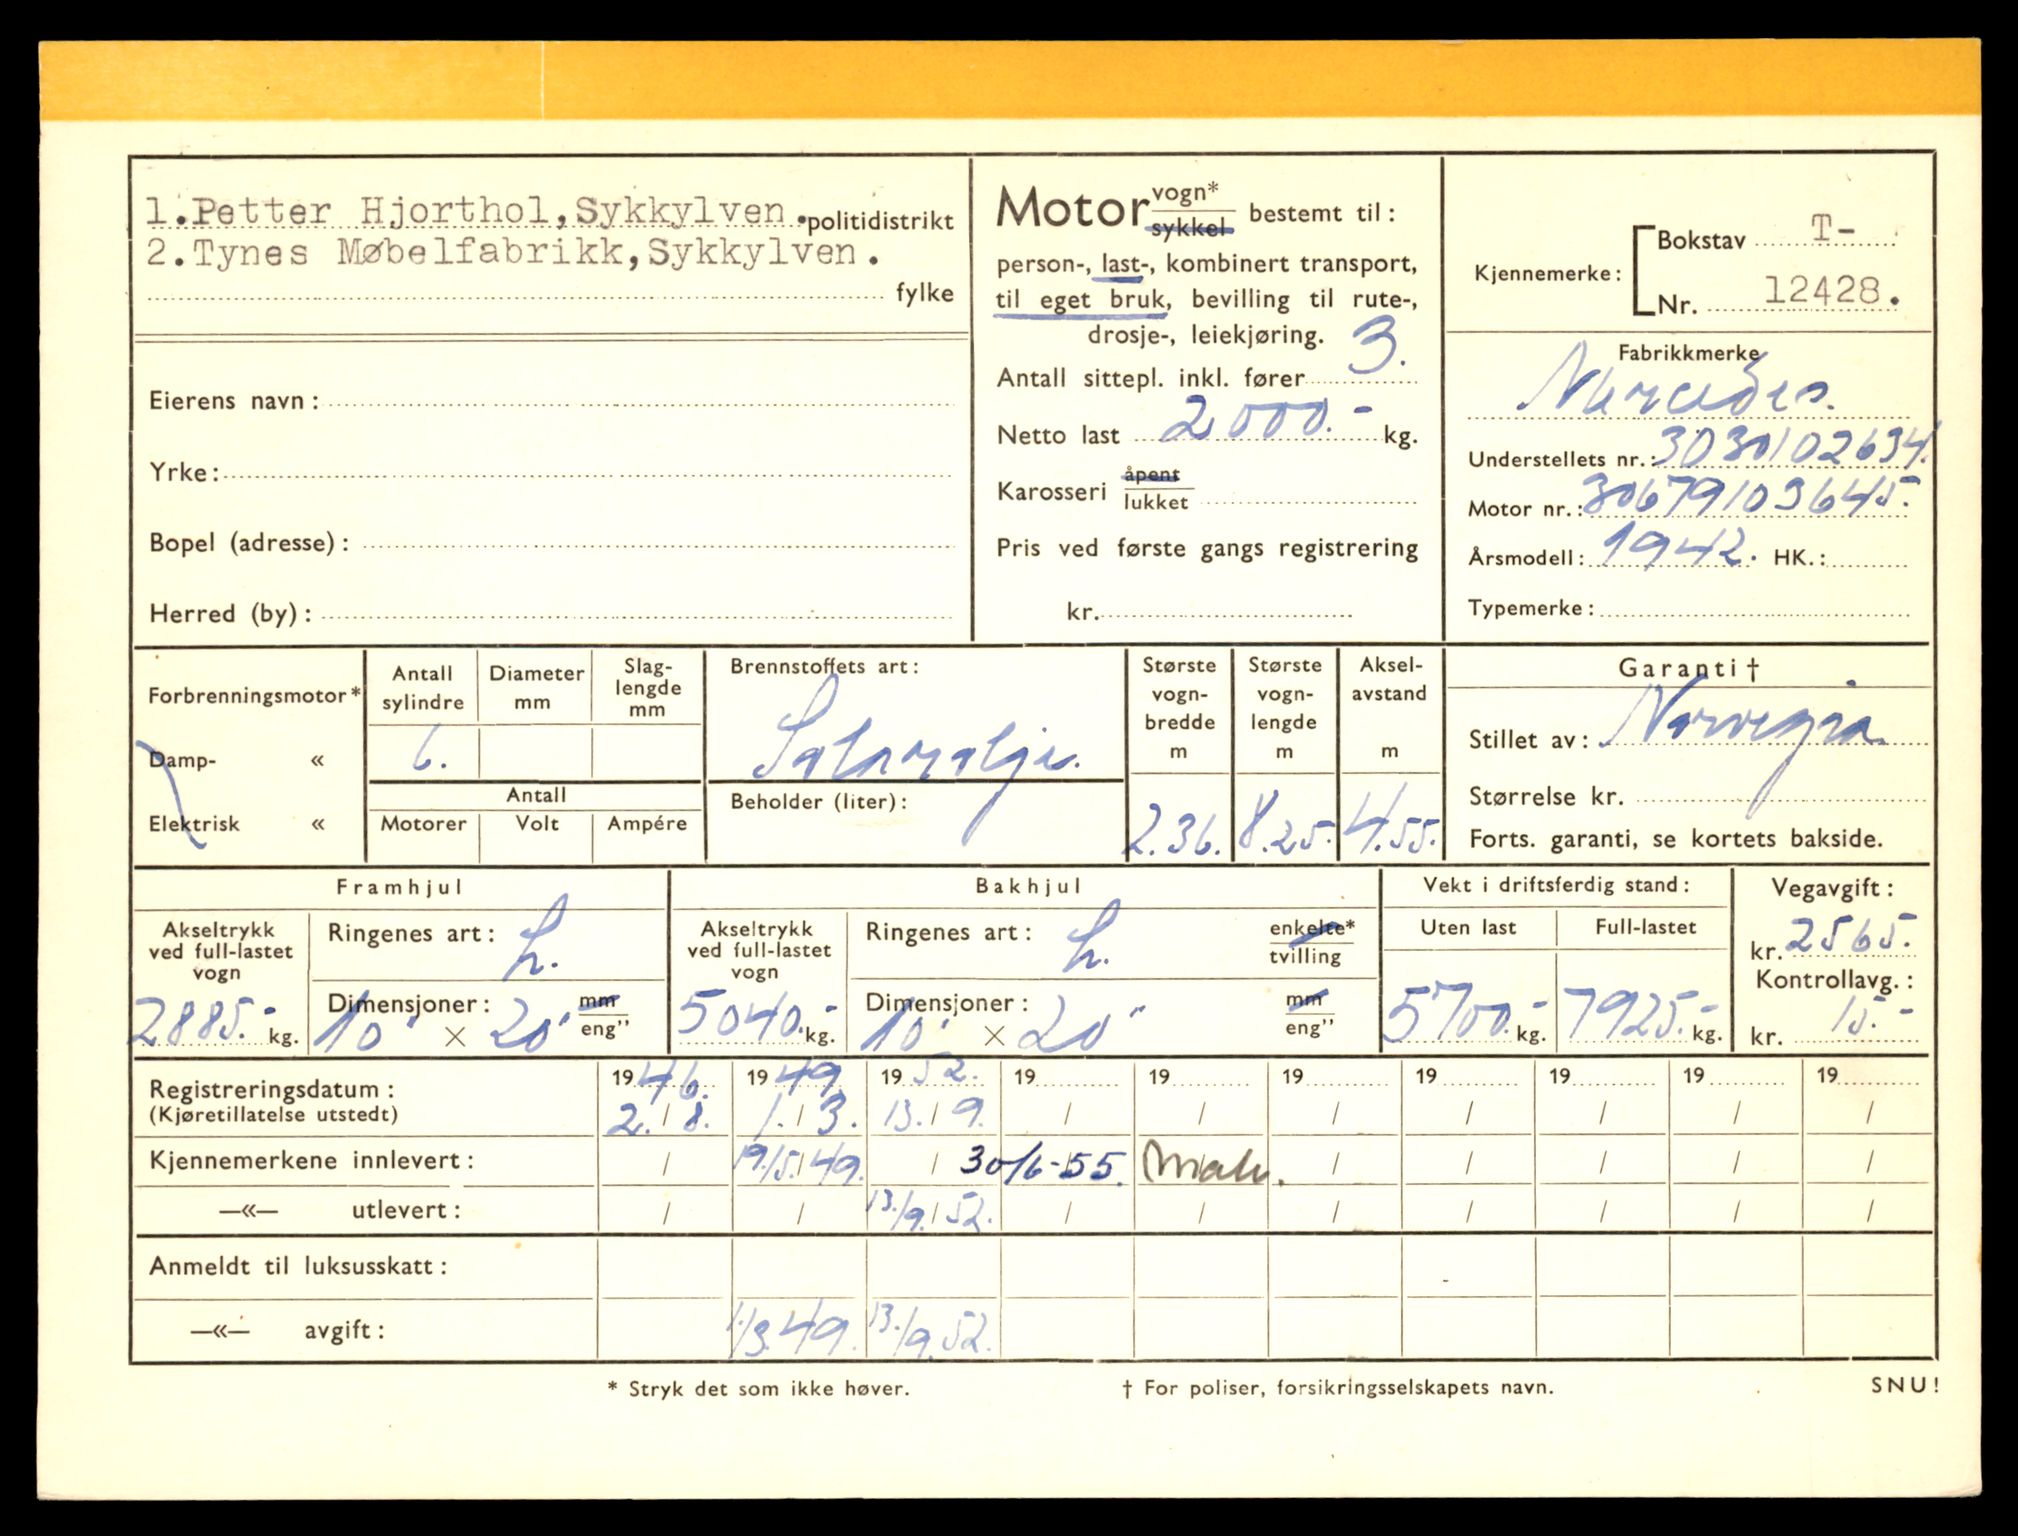 1.Petter Hjorthol,Sykkylven. politidistrikt
2.Tynes Møbelfabrikk,Sykkylven.
fylke
Eierens navn:
Yrke:
Bopel (adresse):
Herred (by):
Motor vogn* / sykkel bestemt til:
person-, last-, kombinert transport,
til eget bruk, bevilling til rute-,
drosje-, leiekjøring.
Antall sittepl. inkl. fører 3.
Netto last 2000.- kg.
Karosseri åpent / lukket
Pris ved første gangs registrering
kr.
Kjennemerke: Bokstav T-
Nr. 12428.
Fabrikkmerke
Mercedes.
Understellets nr.: 3030102634.
Motor nr.: 30679103645.-
Årsmodell: 1942. HK.:
Typemerke:
Forbrenningsmotor*
Damp- «
Elektrisk «
Antall sylindre 6.
Diameter mm
Slag-lengde mm
Antall
Motorer Volt Ampére
Brennstoffets art:
Solarolje.
Beholder (liter):
Største vogn-bredde m 2.36.
Største vogn-lengde m 8.25.-
Aksel-avstand m 4.55.-
Garanti †
Stillet av: Norvegia
Størrelse kr.
Forts. garanti, se kortets bakside.
Framhjul
Akseltrykk ved full-lastet vogn
2885.- kg.
Ringenes art: h.
Dimensjoner: 10" × 20" mm / eng"
Bakhjul
Akseltrykk ved full-lastet vogn
5040.- kg.
Ringenes art: h. enkelte* / tvilling
Dimensjoner: 10" × 20" mm / eng"
Vekt i driftsferdig stand:
Uten last Full-lastet
5700.- kg. 7925.- kg.
Vegavgift:
kr. 2565.-
Kontrollavg.:
kr. 15.-
Registreringsdatum: 1946. 1949 1952. 19 19 19 19 19 19 19
(Kjøretillatelse utstedt) 2./8. 1./3. 13./9. / / / / / / /
Kjennemerkene innlevert: / 19./5.49. / 30/6-55. / / / / /
—«— utlevert: / / 13./9.52. / / / / / / /
Anmeldt til luksusskatt:
—«— avgift: 1./3.49. 13./9.52.
* Stryk det som ikke høver. † For poliser, forsikringsselskapets navn. SNU!